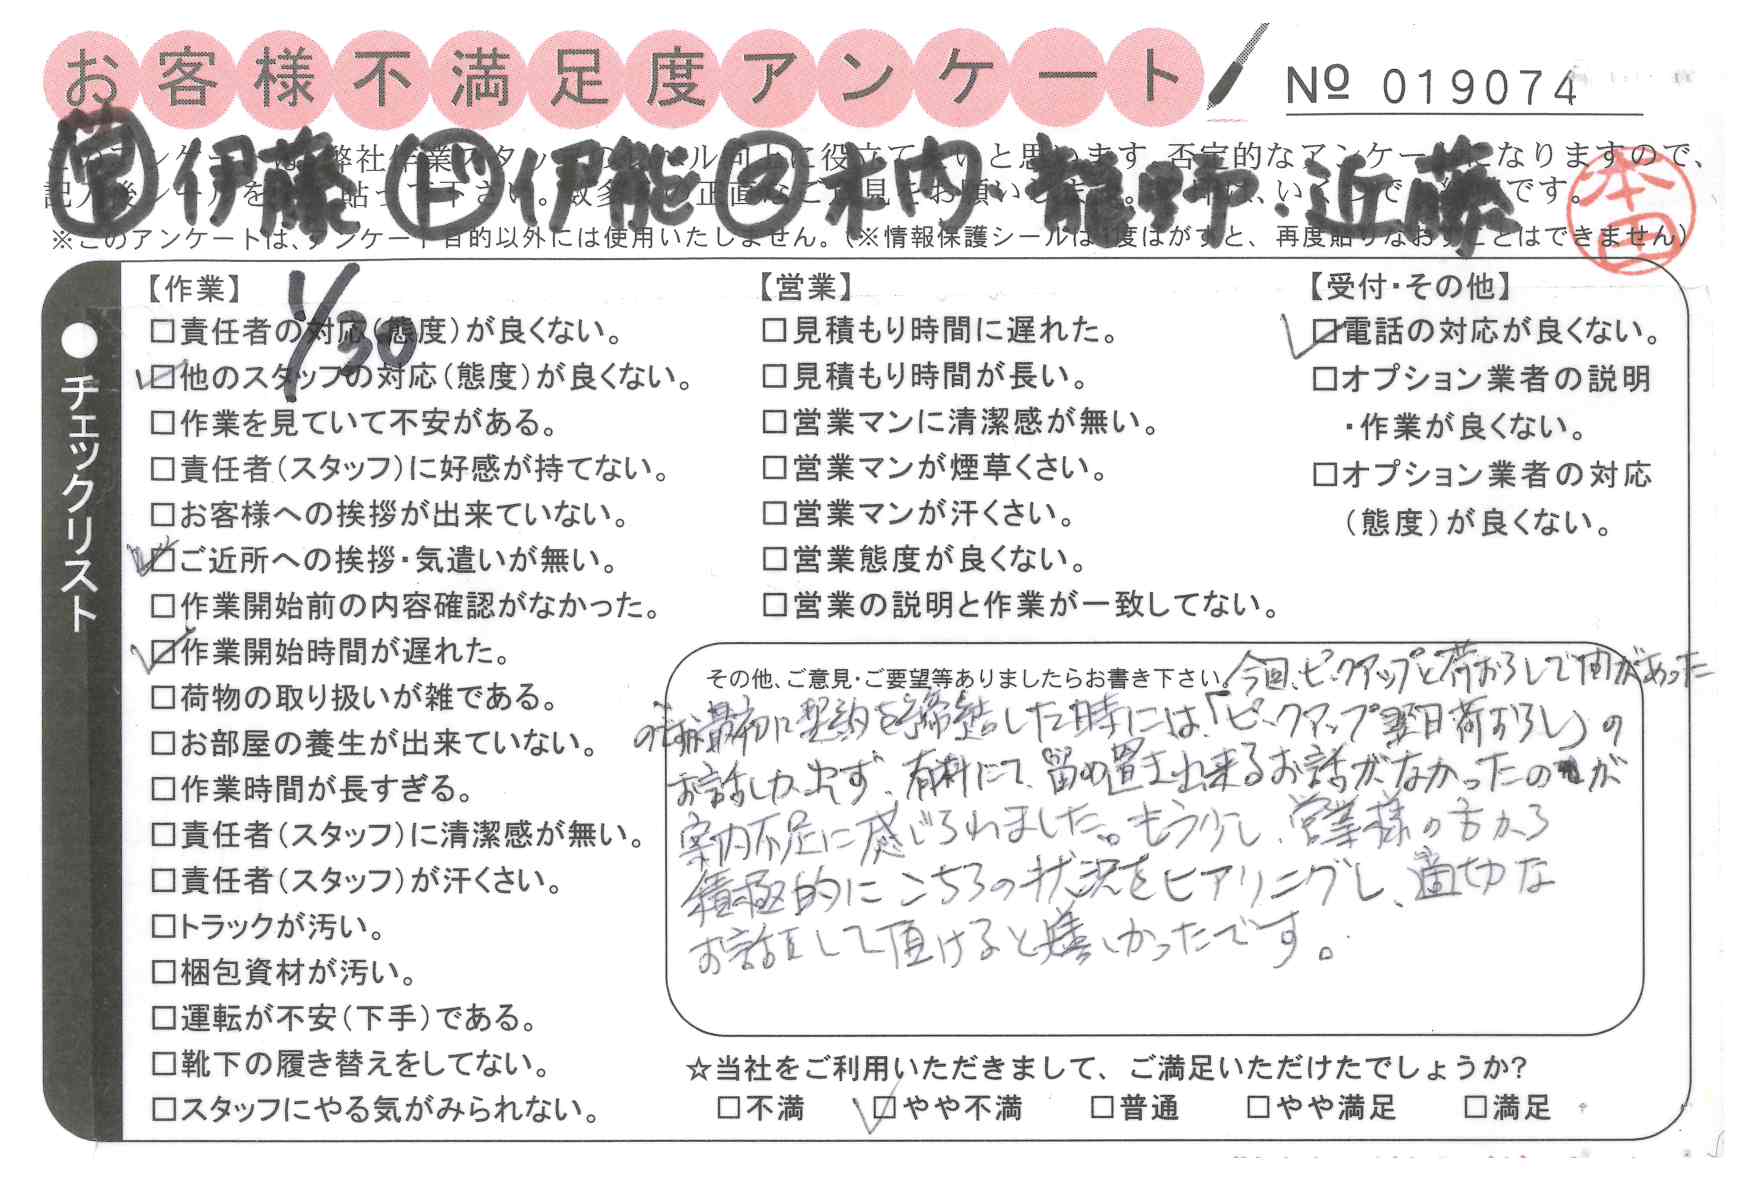 お客様不満足度アンケート
№ 019074
営 伊藤 ド 伊能 ス 木内 龍野・近藤
本田
※このアンケートは、アンケート目的以外には使用いたしません。(※情報保護シールは1度はがすと、再度貼りなおすことはできません)
1/30
●チェックリスト
【作業】
□責任者の対応(態度)が良くない。
☑他のスタッフの対応(態度)が良くない。
□作業を見ていて不安がある。
□責任者(スタッフ)に好感が持てない。
□お客様への挨拶が出来ていない。
☑ご近所への挨拶・気遣いが無い。
□作業開始前の内容確認がなかった。
☑作業開始時間が遅れた。
□荷物の取り扱いが雑である。
□お部屋の養生が出来ていない。
□作業時間が長すぎる。
□責任者(スタッフ)に清潔感が無い。
□責任者(スタッフ)が汗くさい。
□トラックが汚い。
□梱包資材が汚い。
□運転が不安(下手)である。
□靴下の履き替えをしてない。
□スタッフにやる気がみられない。
【営業】
□見積もり時間に遅れた。
□見積もり時間が長い。
□営業マンに清潔感が無い。
□営業マンが煙草くさい。
□営業マンが汗くさい。
□営業態度が良くない。
□営業の説明と作業が一致してない。
【受付・その他】
☑電話の対応が良くない。
□オプション業者の説明
・作業が良くない。
□オプション業者の対応
(態度)が良くない。
その他、ご意見・ご要望等ありましたらお書き下さい。今回、ピックアップと荷おろしで間があった
最初に契約を締結した時には、「ピックアップ翌日荷おろし」の
お話しか出ず、有料にて留め置き出来るお話がなかったのが
案内不足に感じられました。もう少し、営業様の方から
積極的にこちらの状況をヒアリングし、適切な
お話をして頂けると嬉しかったです。
☆当社をご利用いただきまして、ご満足いただけたでしょうか?
□不満 ☑やや不満 □普通 □やや満足 □満足